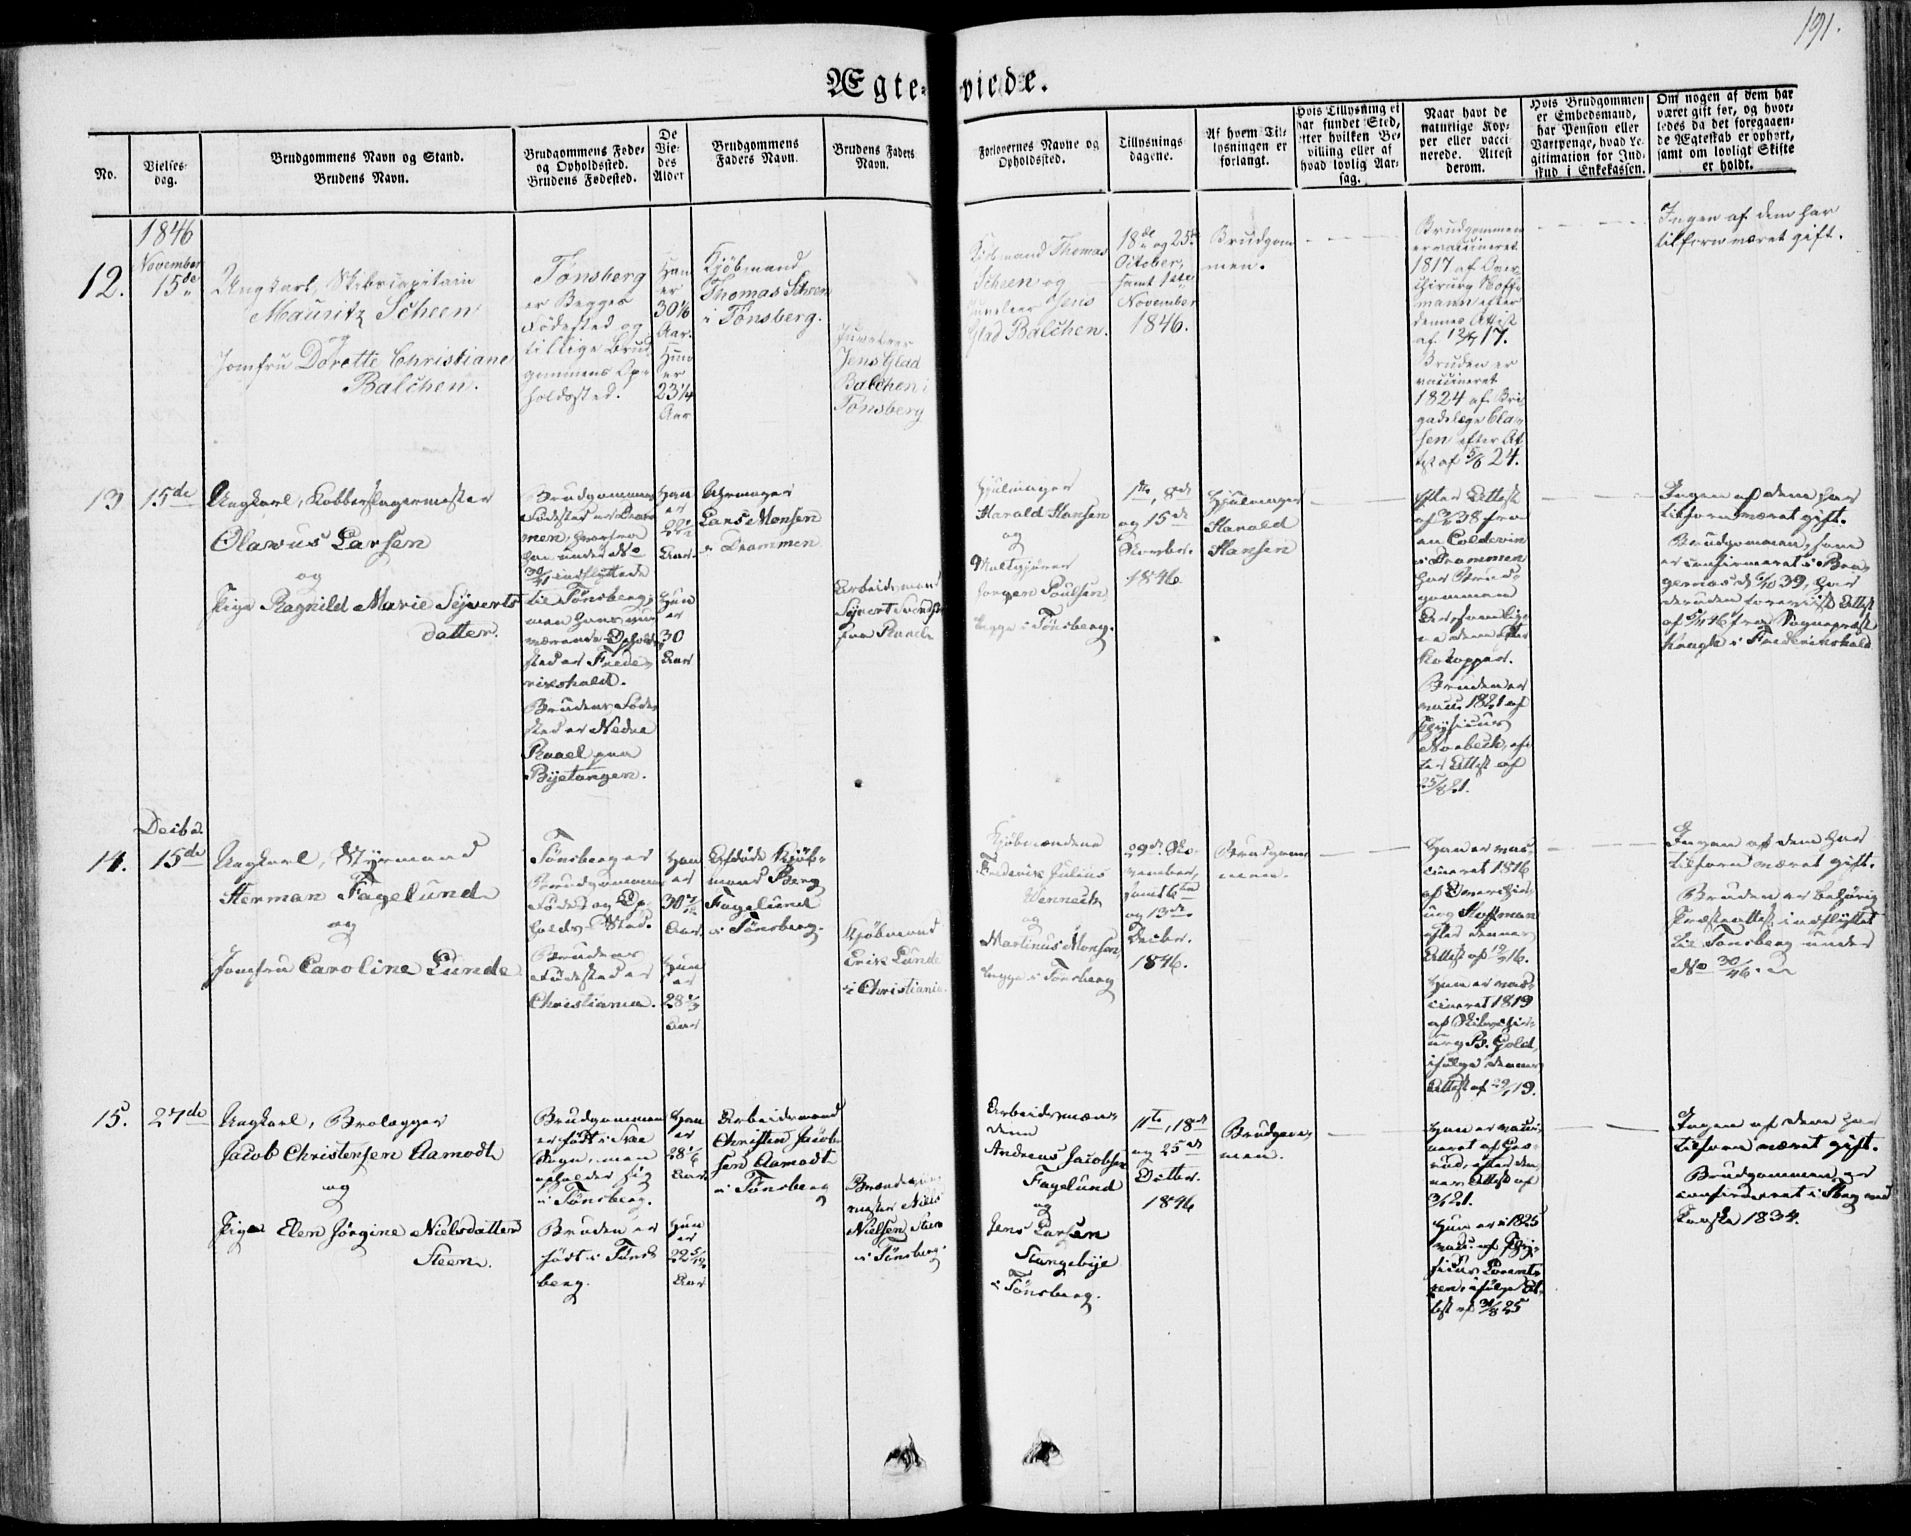 191.
Ægteviede.
No.
Vielses-
dag.
Brudgommens Navn og Stand.
Brudens Navn.
Brudgommens Føde-
og Opholdssted.
Brudens Fødested.
De
Vie-
des
Alder
Brudgommens
Faders Navn.
Brudens Faders
Navn.
Forlovernes Navne og
Opholdssted.
Tillysnings
dagene.
Af hvem Til-
lysningen er
forlangt.
Hvis Tillysning ei
har fundet Sted,
efter hvilken Be-
villing eller af
hvad lovlig Aar-
sag.
Naar havt de
naturlige Kop-
per eller vacci-
nerede. Attest
derom.
Hvis Brudgommen
er Embedsmand,
har Pension eller
Vartpenge, hvad Le-
gitimation for Ind-
skud i Enkekassen.
Om nogen af dem har
været gift før, og hvor-
ledes da det foregaaen-
de Ægteskab er ophørt,
samt om lovligt Skifte
er holdt.
12.
1846
November
15de
Ungkarl, Skibscapitain
Mauritz Scheen
og
Jomfru Dorotte Christiane
Balchen.
Tønsberg
er Begges
Fødested og
tillige Brud-
gommens Op-
holdssted.
Han
er
30 1/6
Aar.
Hun
er
23 1/4
Aar
Kjøbmand
Thomas Scheen
i Tønsberg.
Juveleer
Jens Glad
Balchen i
Tønsberg
Kjøbmand Thomas
Scheen og
Juveleer Jens
Glad Balchen.
18de og 25de
October,
samt 1ste
November
1846.
Brudgom
men.
Brudgommen
er vaccineret
1817 af Over-
chirurg Hoff-
mann efter
dennes Attest
af 17.
Bruden er
vaccineret
1824 af Bri
gadelæge Cla-
sen efter At
test af 5/6 24.
Ingen af dem har
tilforn været gift.
13
15de
Ungkarl, Kobberslagermester
Olavus Larsen
og
Pige Ragnild Marie Sejverts
datter.
Brudgommens
Fødested er Dram
men, hvorfra
han under No
indflyttede
til Tønsberg,
men hans nu
værende Opholds
sted er Frede-
rikshald.
Brudens Føde-
sted er Nedre
Raael paa
Byetangen.
Han
er
22 1/2
Aar.
Hun
er
30
Aar
Lars Monsen
i Drammen.
Arbeidsmand
Sejvert Svendsen
fra Raael
Hjulmager
Harald Hansen
og
Maltgjører
Jørgen Poulsen,
begge i Tønsberg.
1ste, 8de
og 15de
Novbr.
1846
Hjulmager
Harald
Hansen
Efter Attest
af 38 fra
en Coldevin
i Drammen
har Brud-
gommen
Kokopper.
Bruden er
vacc. 1821 af
Physicus
Norbech, ef-
ter Attest af
25/8 21.
Ingen af dem har
tilforn været gift.
Brudgommen, som
er confirmeret i Bra-
gernes d. 39, har
desuden foreviist Attest
af 46 fra Sognepræst
Kragh i Frederikshald
14.
Decbr.
15de
Ungkarl, Styrmand
Herman Fagelund
og
Jomfru Caroline Lunde
Tønsberg er
Brudgommens
Føde- og Op-
holds-Sted.
Brudens
Fødested er
Christiania.
Han
er
30
Aar
Hun
er
28 1/3
Aar
Afdøde Kjøb-
mand Berg
Fagelund
i Tønsberg.
Kjøbmand
Erik Lunde
i Christiania.
Kjøbmændene
Frederik Julius
Wennech
og
Martinus Monsen,
begge i Tønsberg
29de No-
vember,
samt 6te
og 13de
Decbr.
1846.
Brudgom
men.
Han er vac-
cineret 1816
af Overchir-
urg Hoffman
efter dennes
Attest af 16.
Hun er vac-
cineret 1819
af Skibschir-
urg B. Gold,
ifølge dennes
Attest af 19.
Ingen af dem har
tilforn været gift.
Bruden er behørig
Præsteattest indflyttet
til Tønsberg under
No 30/46.
15.
27de
Ungkarl, Brolægger
Jacob Christensen Aamodt
og
Pigen Elen Jørgine Nielsdatter
Steen.
Brudgommen
er født i
Sogn, men
opholder sig
i Tønsberg.
Bruden er
født i Tøns-
berg.
Han
er
28 1/6
Aar.
Hun
er
22 5/12
Aar
Arbeidsmand
Christen Jacob-
sen Aamodt
i Tønsberg
mester Niels
Nielsen Steen
i Tønsberg.
Arbeidsmæn-
dene
Andreas Jacobsen
Fagelund
og
Jens Larsen
Stangebye
i Tønsberg.
11te, 18de
og 25de
Octbr.
1846
Brudgom-
men.
Han er vacci-
neret af
efter den
nes Attest af
21.
Hun er i 1825
vacc. af Phy-
sicus Lorent-
zen, ifølge At-
test af 25
Ingen af dem har
tilforn været gift.
Brudgommen er
confirmeret i
1834.